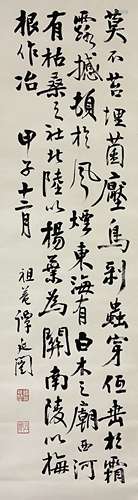 莫不苔埋菌壓鳥剥蟲穿低垂於霜
露撼頓於風煙東海有白木之廟西河
有枯桑之社北陸以楊葉為關南陵以梅
根作冶 甲子十二月
祖菴譚延闓